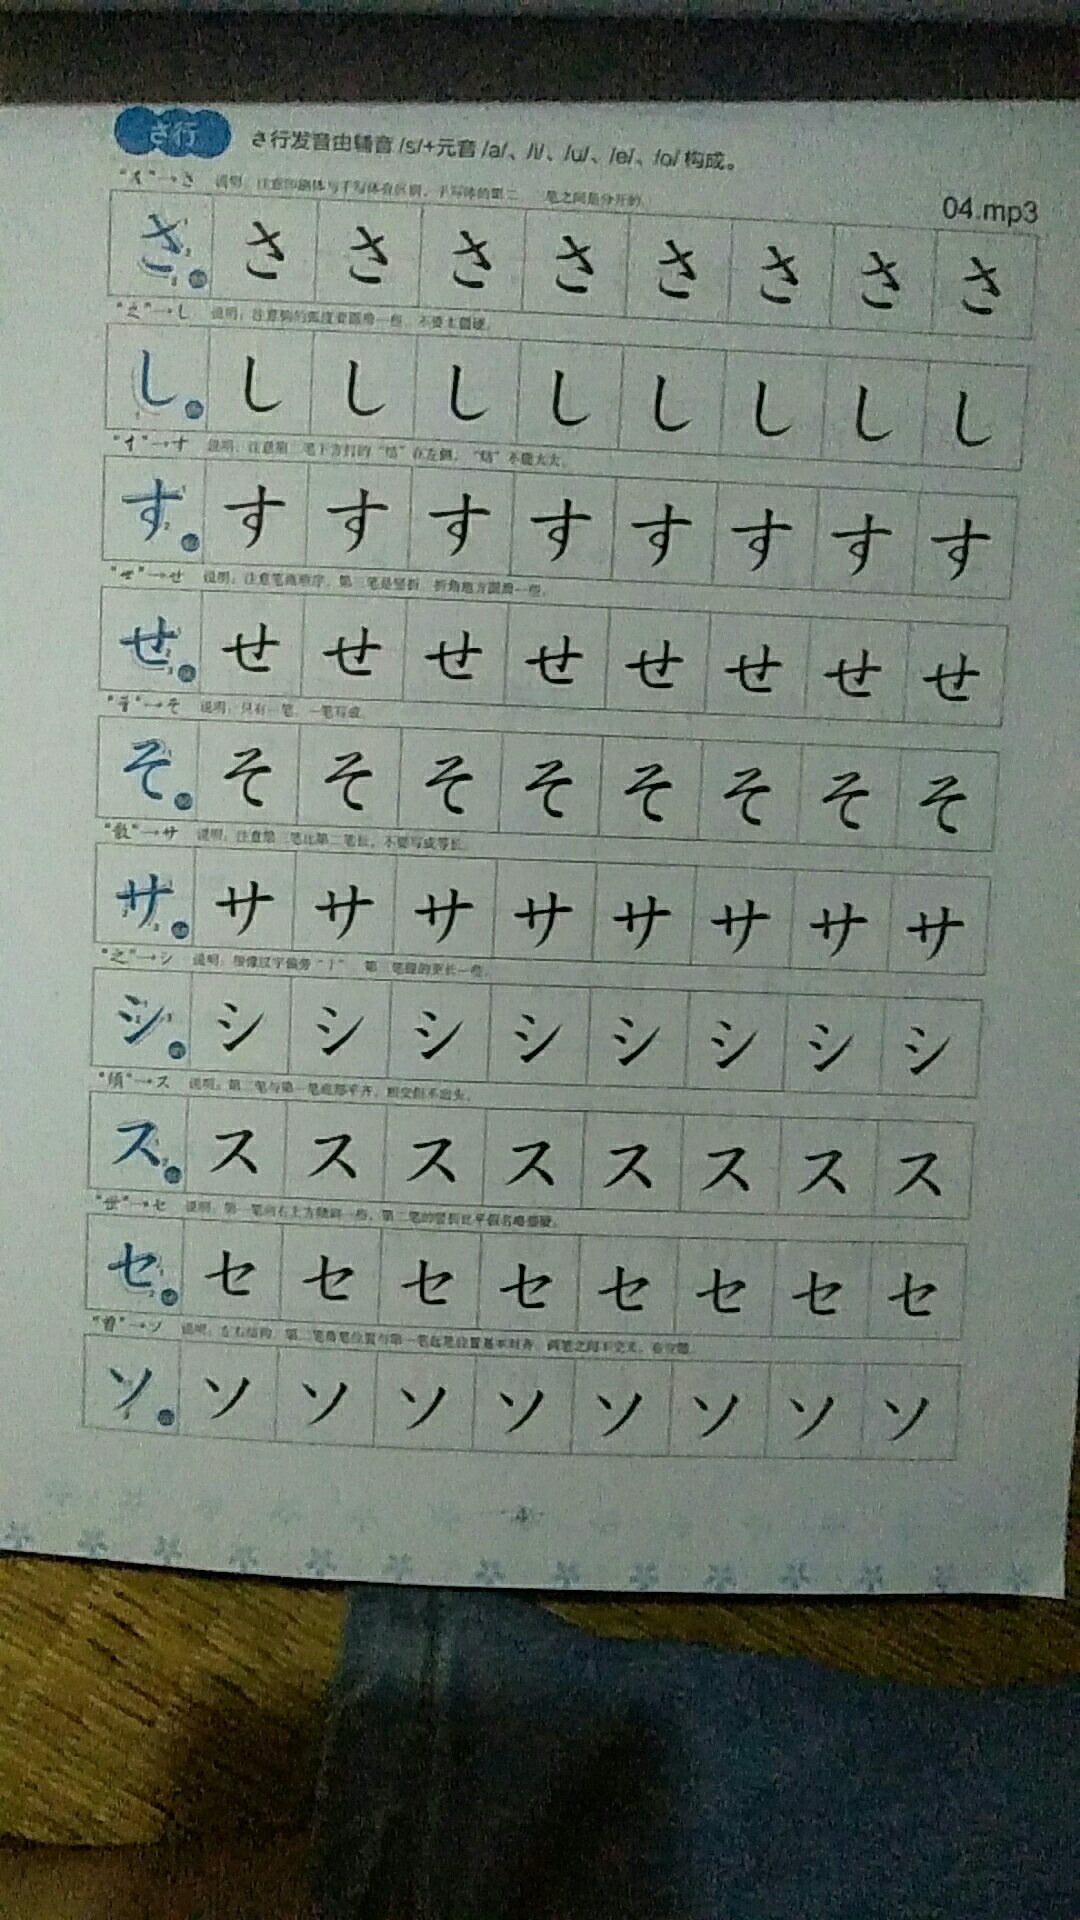 さ行
さ行发音由辅音 /s/+元音 /a/、/i/、/u/、/e/、/o/ 构成。
→さ 说明：注意印刷体与手写体有区别，手写体的第二 笔之间是分开的。
04.mp3
さ さ さ さ さ さ さ さ さ
"之"→し 说明：注意 的弧度要圆滑一些，不要太僵硬。
し し し し し し し し し
→す 说明：注意第二笔下方打的"结"在左侧，"结"不能太大。
す す す す す す す す す
→せ 说明：注意笔画顺序，第三笔是竖折，折角地方圆滑一些。
せ せ せ せ せ せ せ せ せ
→そ 说明：只有一笔，一笔写成。
そ そ そ そ そ そ そ そ そ
"散"→サ 说明：注意第三笔比第二笔长，不要写成等长。
サ サ サ サ サ サ サ サ サ
"之"→シ 说明：很像汉字偏旁"氵" 第三笔 的更长一些。
シ シ シ シ シ シ シ シ シ
"須"→ス 说明：第二笔与第一笔底部平齐，相交但不出头。
ス ス ス ス ス ス ス ス ス
"世"→セ 说明：第一笔向右上方倾斜一些，第二笔的竖折比平假名略僵硬。
セ セ セ セ セ セ セ セ セ
"曽"→ソ 说明：左右结构，第二笔 笔位置与第一笔起笔位置基本对齐，两笔之间不交叉，
ソ ソ ソ ソ ソ ソ ソ ソ ソ
4